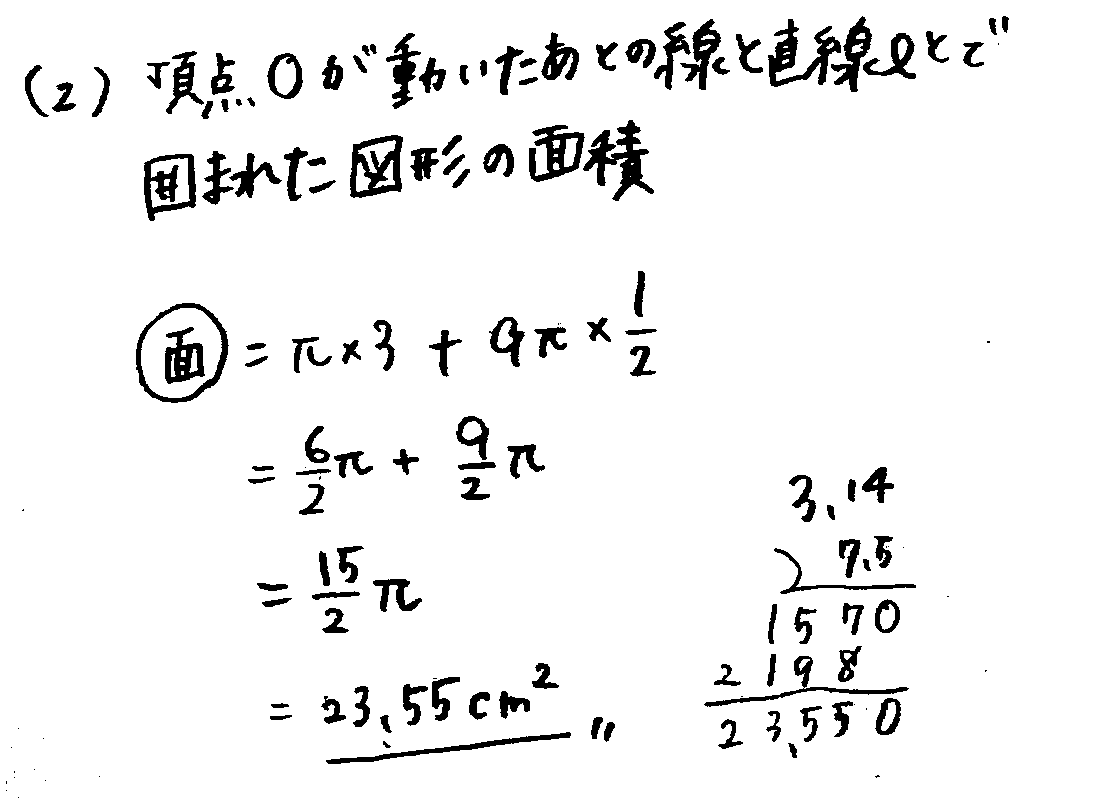 (2) 頂点Oが動いたあとの線と直線ℓとで
囲まれた図形の面積
面 = π×3 + 9π×1/2
= 6/2π + 9/2π
= 15/2π
= 23.55cm²〃
3.14
) 7.5
1570
2198
23.550